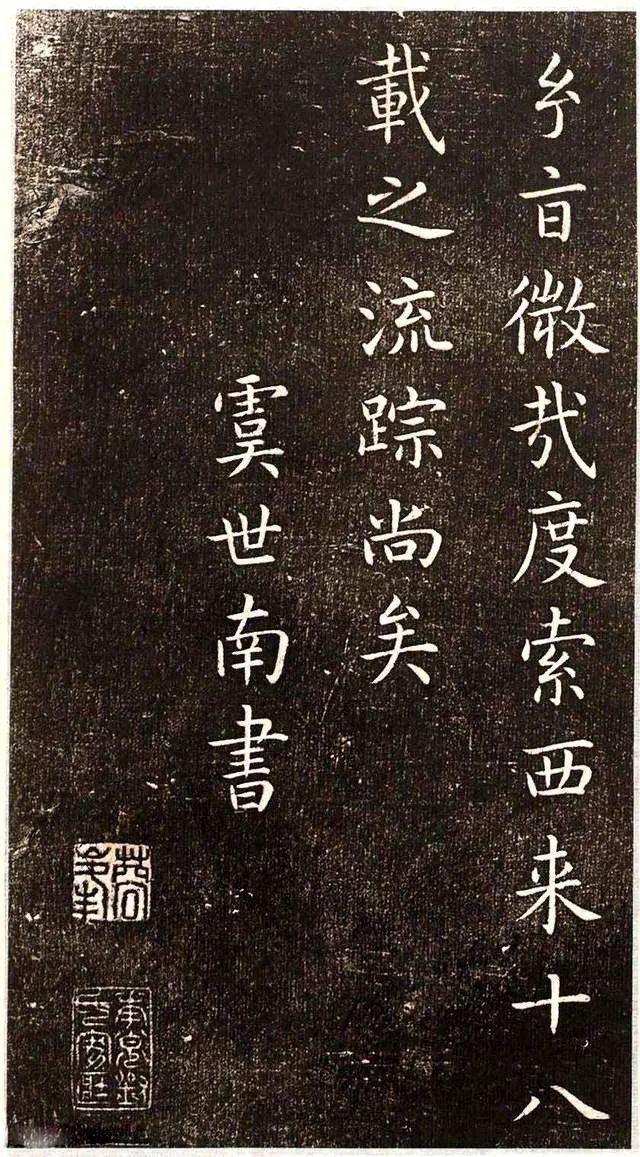 㫖微哉度索西来十八
載之流踪尚矣
虞世南書